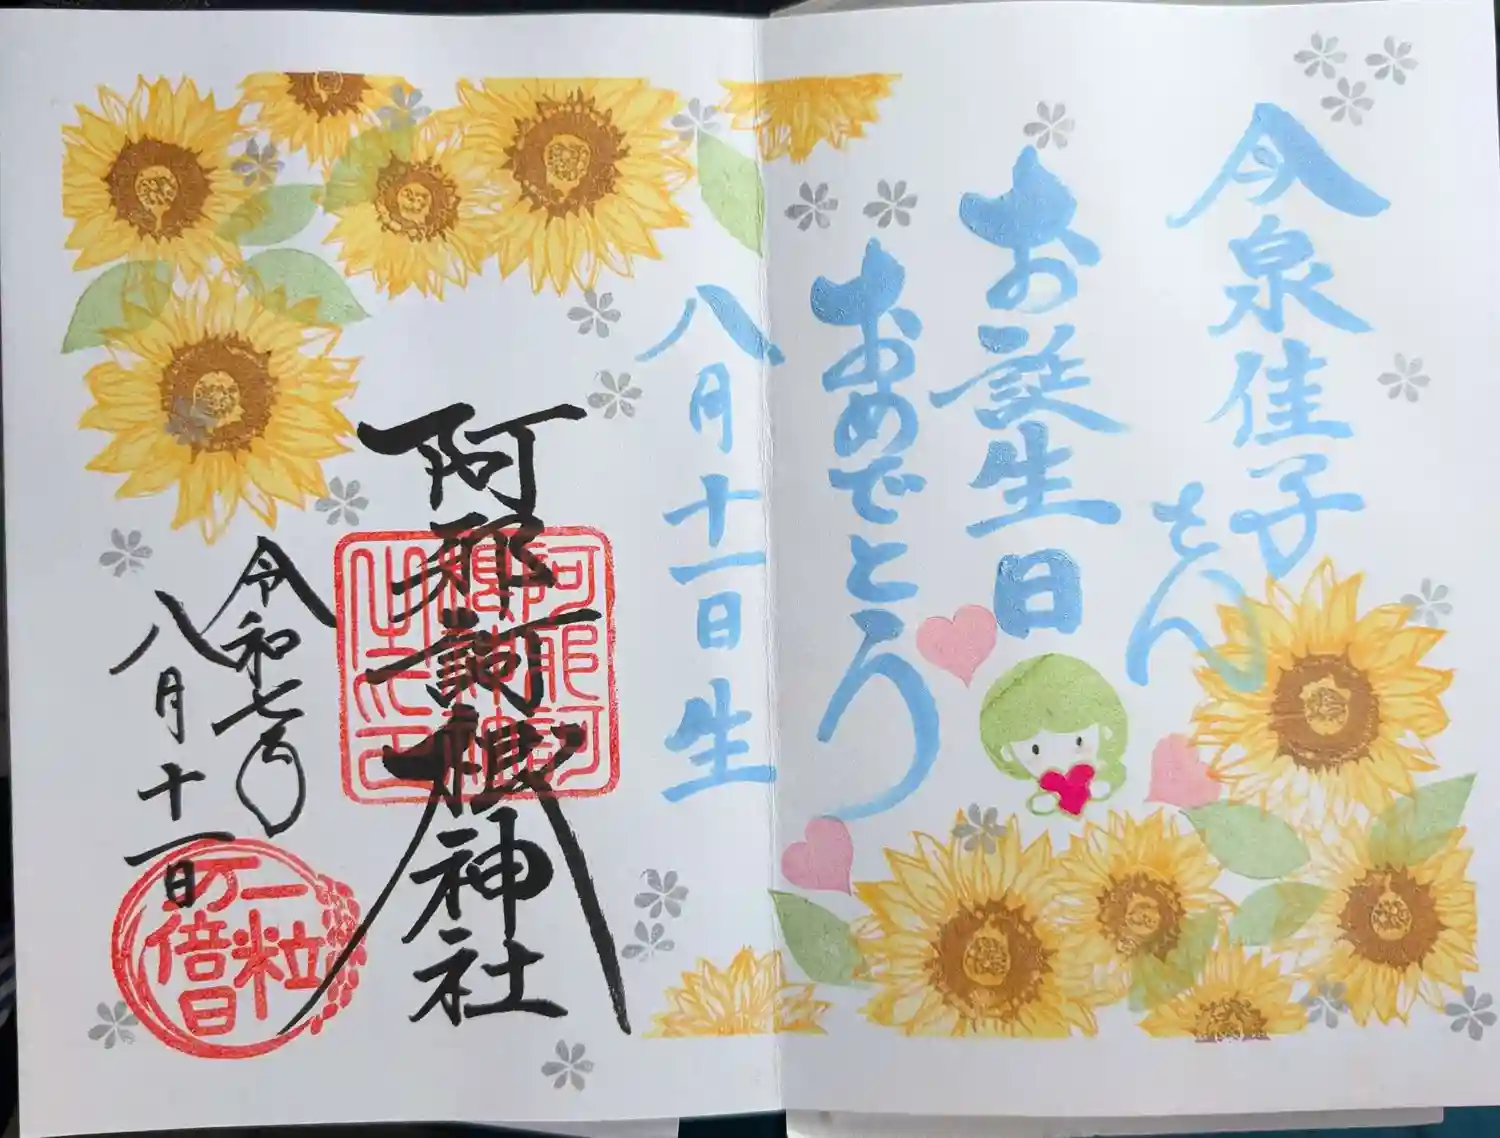 今泉佳子
さん
お誕生日
おめでとう
八月十一日生
阿邪訶根神社
阿耶訶
根神社
之印
令和七年
八月十一日
一粒
万倍日